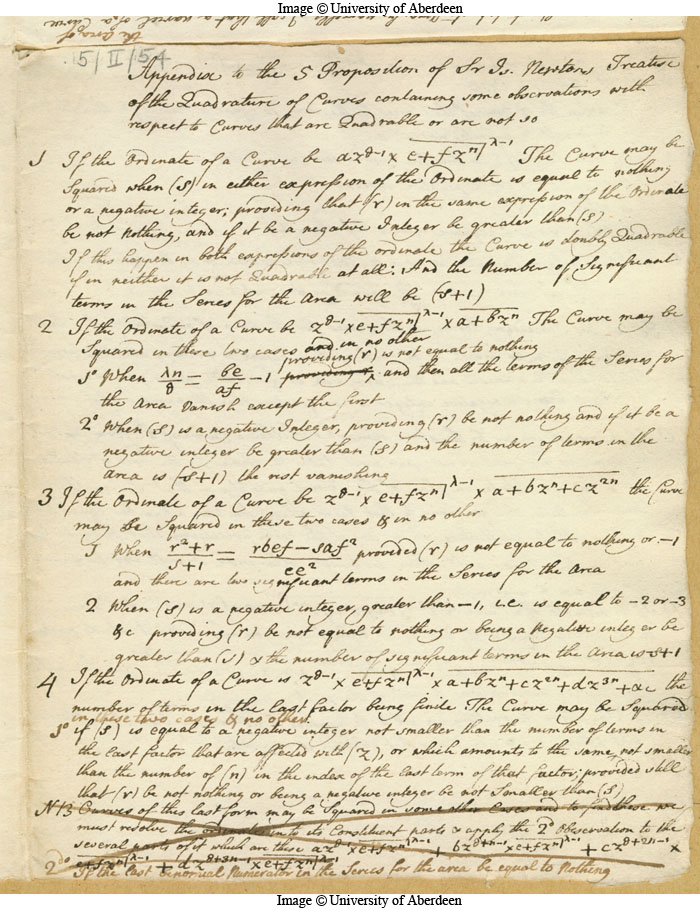 Image © University of Aberdeen
5/II/54
Appendix to the 5 Proposition of Sr Is. Newtons Treatise
of the Quadrature of Curves containing some observations with
respect to Curves that are Quadrable or are not so
1 If the Ordinate of a Curve be az^θ-1 × e+fz^n|^λ-1 The Curve may be
Squared when (s) in either expression of the Ordinate is equal to nothing
or a negative integer; providing that (r) in the same expression of the Ordinate
be not Nothing, and if it be a negative Integer be greater than (s).
If this happen in both expressions of the ordinate the Curve is doubly Quadrable
if in neither it is not Quadrable at all: And the Number of Significant
terms in the Series for the Area will be (s+1)
2 If the Ordinate of a Curve be z^θ-1 × e+fz^n|^λ-1 × a+bz^n The Curve may be
Squared in these two cases and in no other
providing (r) is not equal to nothing
1° When λn/θ = be/af - 1 and then all the terms of the Series for
the Area Vanish except the first
2° When (s) is a negative Integer, providing (r) be not nothing and if it be a
negative integer be greater than (s) and the number of terms in the
area is (s+1) the rest vanishing
3 If the Ordinate of a Curve be z^θ-1 × e+fz^n|^λ-1 × a+bz^n+cz^2n the Curve
may be Squared in these two cases & in no other
1 When r²+r/s+1 = rbef-saf²/ce² provided (r) is not equal to nothing or -1
and there are two significant terms in the Series for the Area
2 When (s) is a negative integer, greater than -1, i.e. is equal to -2 or -3
&c providing (r) be not equal to nothing or being a Negative integer be
greater than (s) & the number of significant terms in the Area is s+1
4 If the Ordinate of a Curve is z^θ-1 × e+fz^n|^λ-1 × a+bz^n+cz^2n+dz^3n+&c the
number of terms in the last factor being finite The Curve may be Squared
in these two cases & no other.
1° if (s) is equal to a negative integer not smaller than the number of terms in
the last factor that are affected with (z), or which amounts to the same, not smaller
than the number of (n) in the index of the last term of that factor; provided still
that (r) be not nothing or being a negative integer be not Smaller than (s)
NB Curves of this last form may be Squared in some other Cases and to find these we
must resolve the into its Constituent parts & apply the 2d Observation to the
several parts of it which are these az^θ-1 × e+fz^n|^λ-1 + bz^θ+n-1 × e+fz^n|^λ-1 + cz^θ+2n-1 ×
e+fz^n|^λ-1 + dz^θ+3n-1 × e+fz^n|^λ-1
2do If the last binomial Numerator in the Series for the area be equal to Nothing
Image © University of Aberdeen